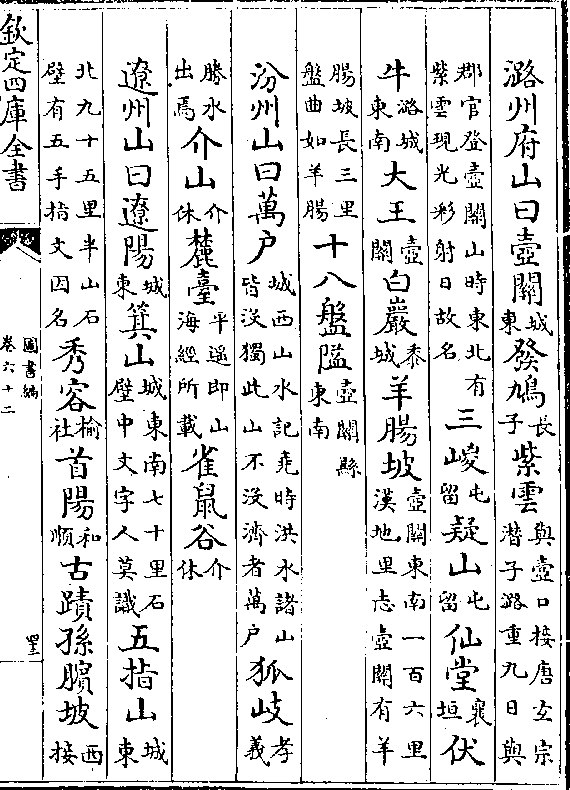 潞州府山曰壺關城東發鳩長子紫雲與壺口接唐玄宗潛子潞重九日與
郡官登壺關山時東北有紫雲現光彩射日故名三嵕屯留疑山屯留仙堂襄垣伏
牛潞城東南大王壺關白巖黎城羊腸坡壺關東南一百六里漢地里志壺關有羊
腸坡長三里盤曲如羊腸十八盤隘壺關縣東南
汾州山曰萬户城西山水記堯時洪水諸山皆没獨此山不没濟者萬户狐岐孝義
勝水出焉介山介休麓臺平遥即山海經所載雀鼠谷介休
遼州山曰遼陽城東箕山城東南七十里石壁中文字人莫識五指山城東
北九十五里半山石壁有五手指文因名秀容榆社首陽和順古蹟孫臏坡西接
欽定四庫全書
圖書編
卷六十二